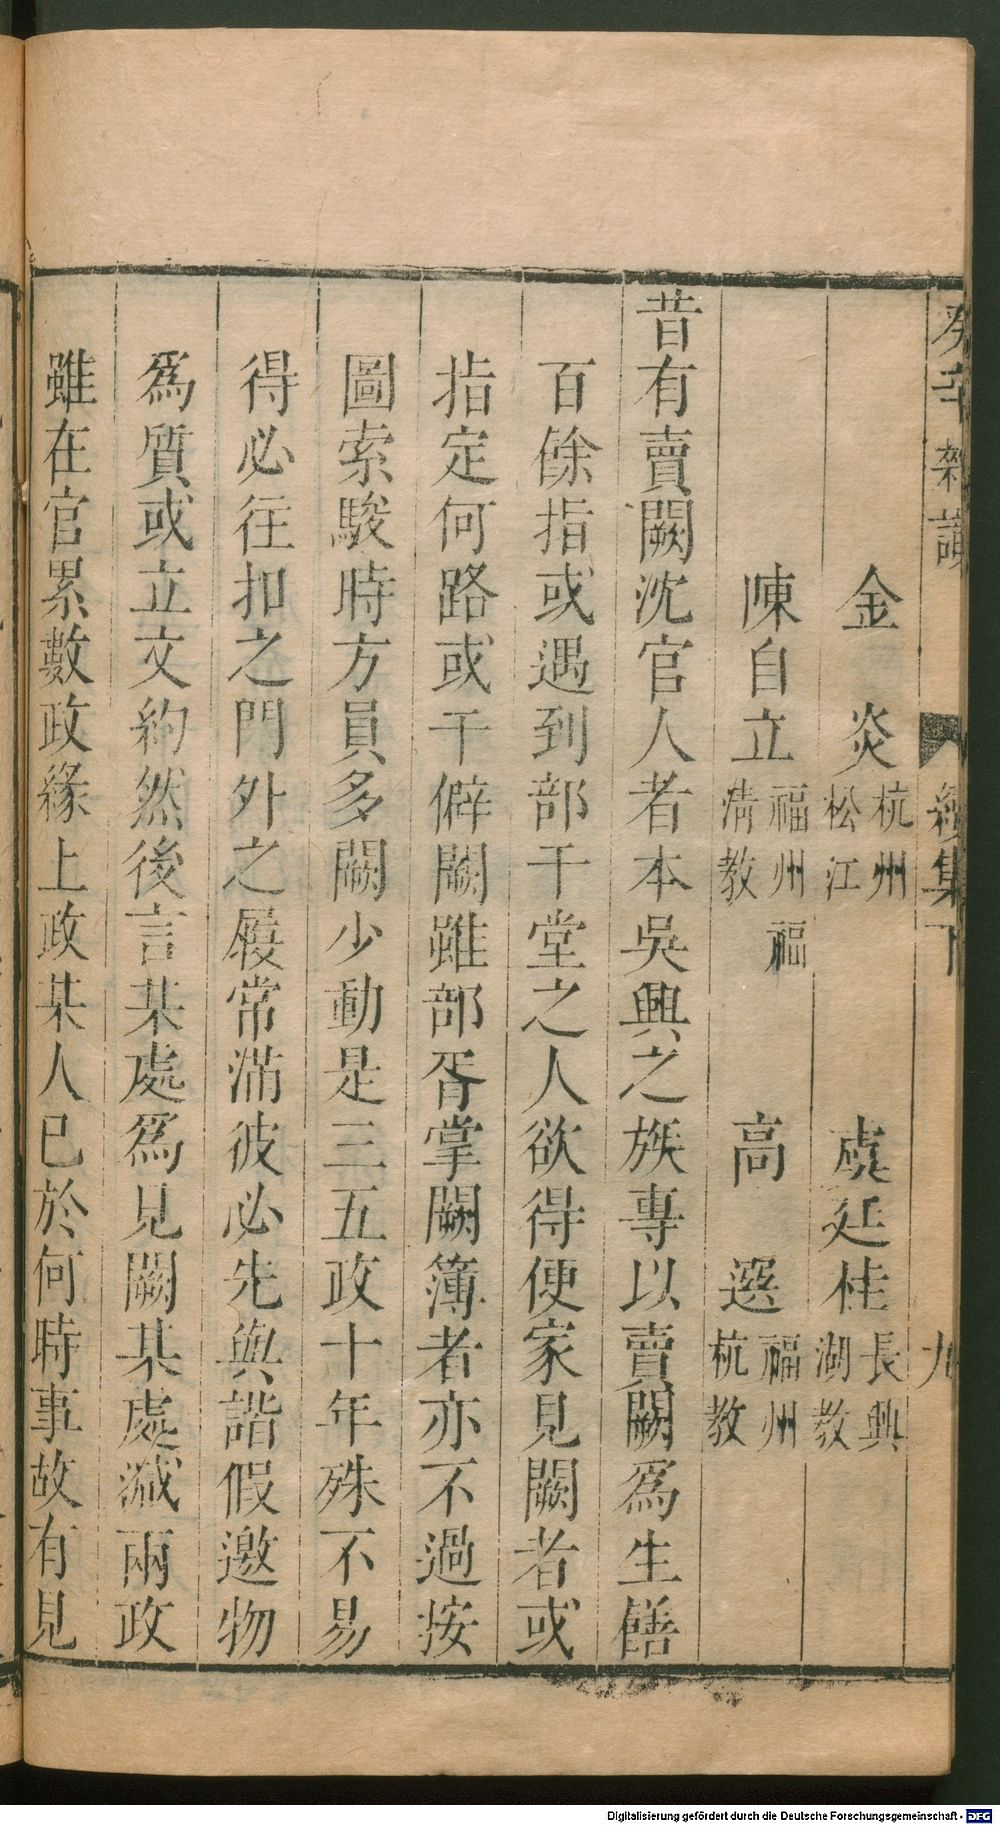 癸辛雜識
續集下
九
金　炎杭州松江　虞廷桂長興湖教
陳自立福州福清教　高　選福州杭教
昔有賣闕沈官人者本吳興之族專以賣闕爲生饍
百餘指或遇到部干堂之人欲得便家見闕者或
指定何路或干僻闕雖部胥掌闕簿者亦不過按
圖索駿時方員多闕少動是三五政十年殊不易
得必往扣之門外之屨常滿彼必先與諧假邀物
爲質或立文約然後言某處爲見闕某處減兩政
雖在官累數政緣上政某人已於何時事故有見
Digitalisierung gefördert durch die Deutsche Forschungsgemeinschaft - DFG